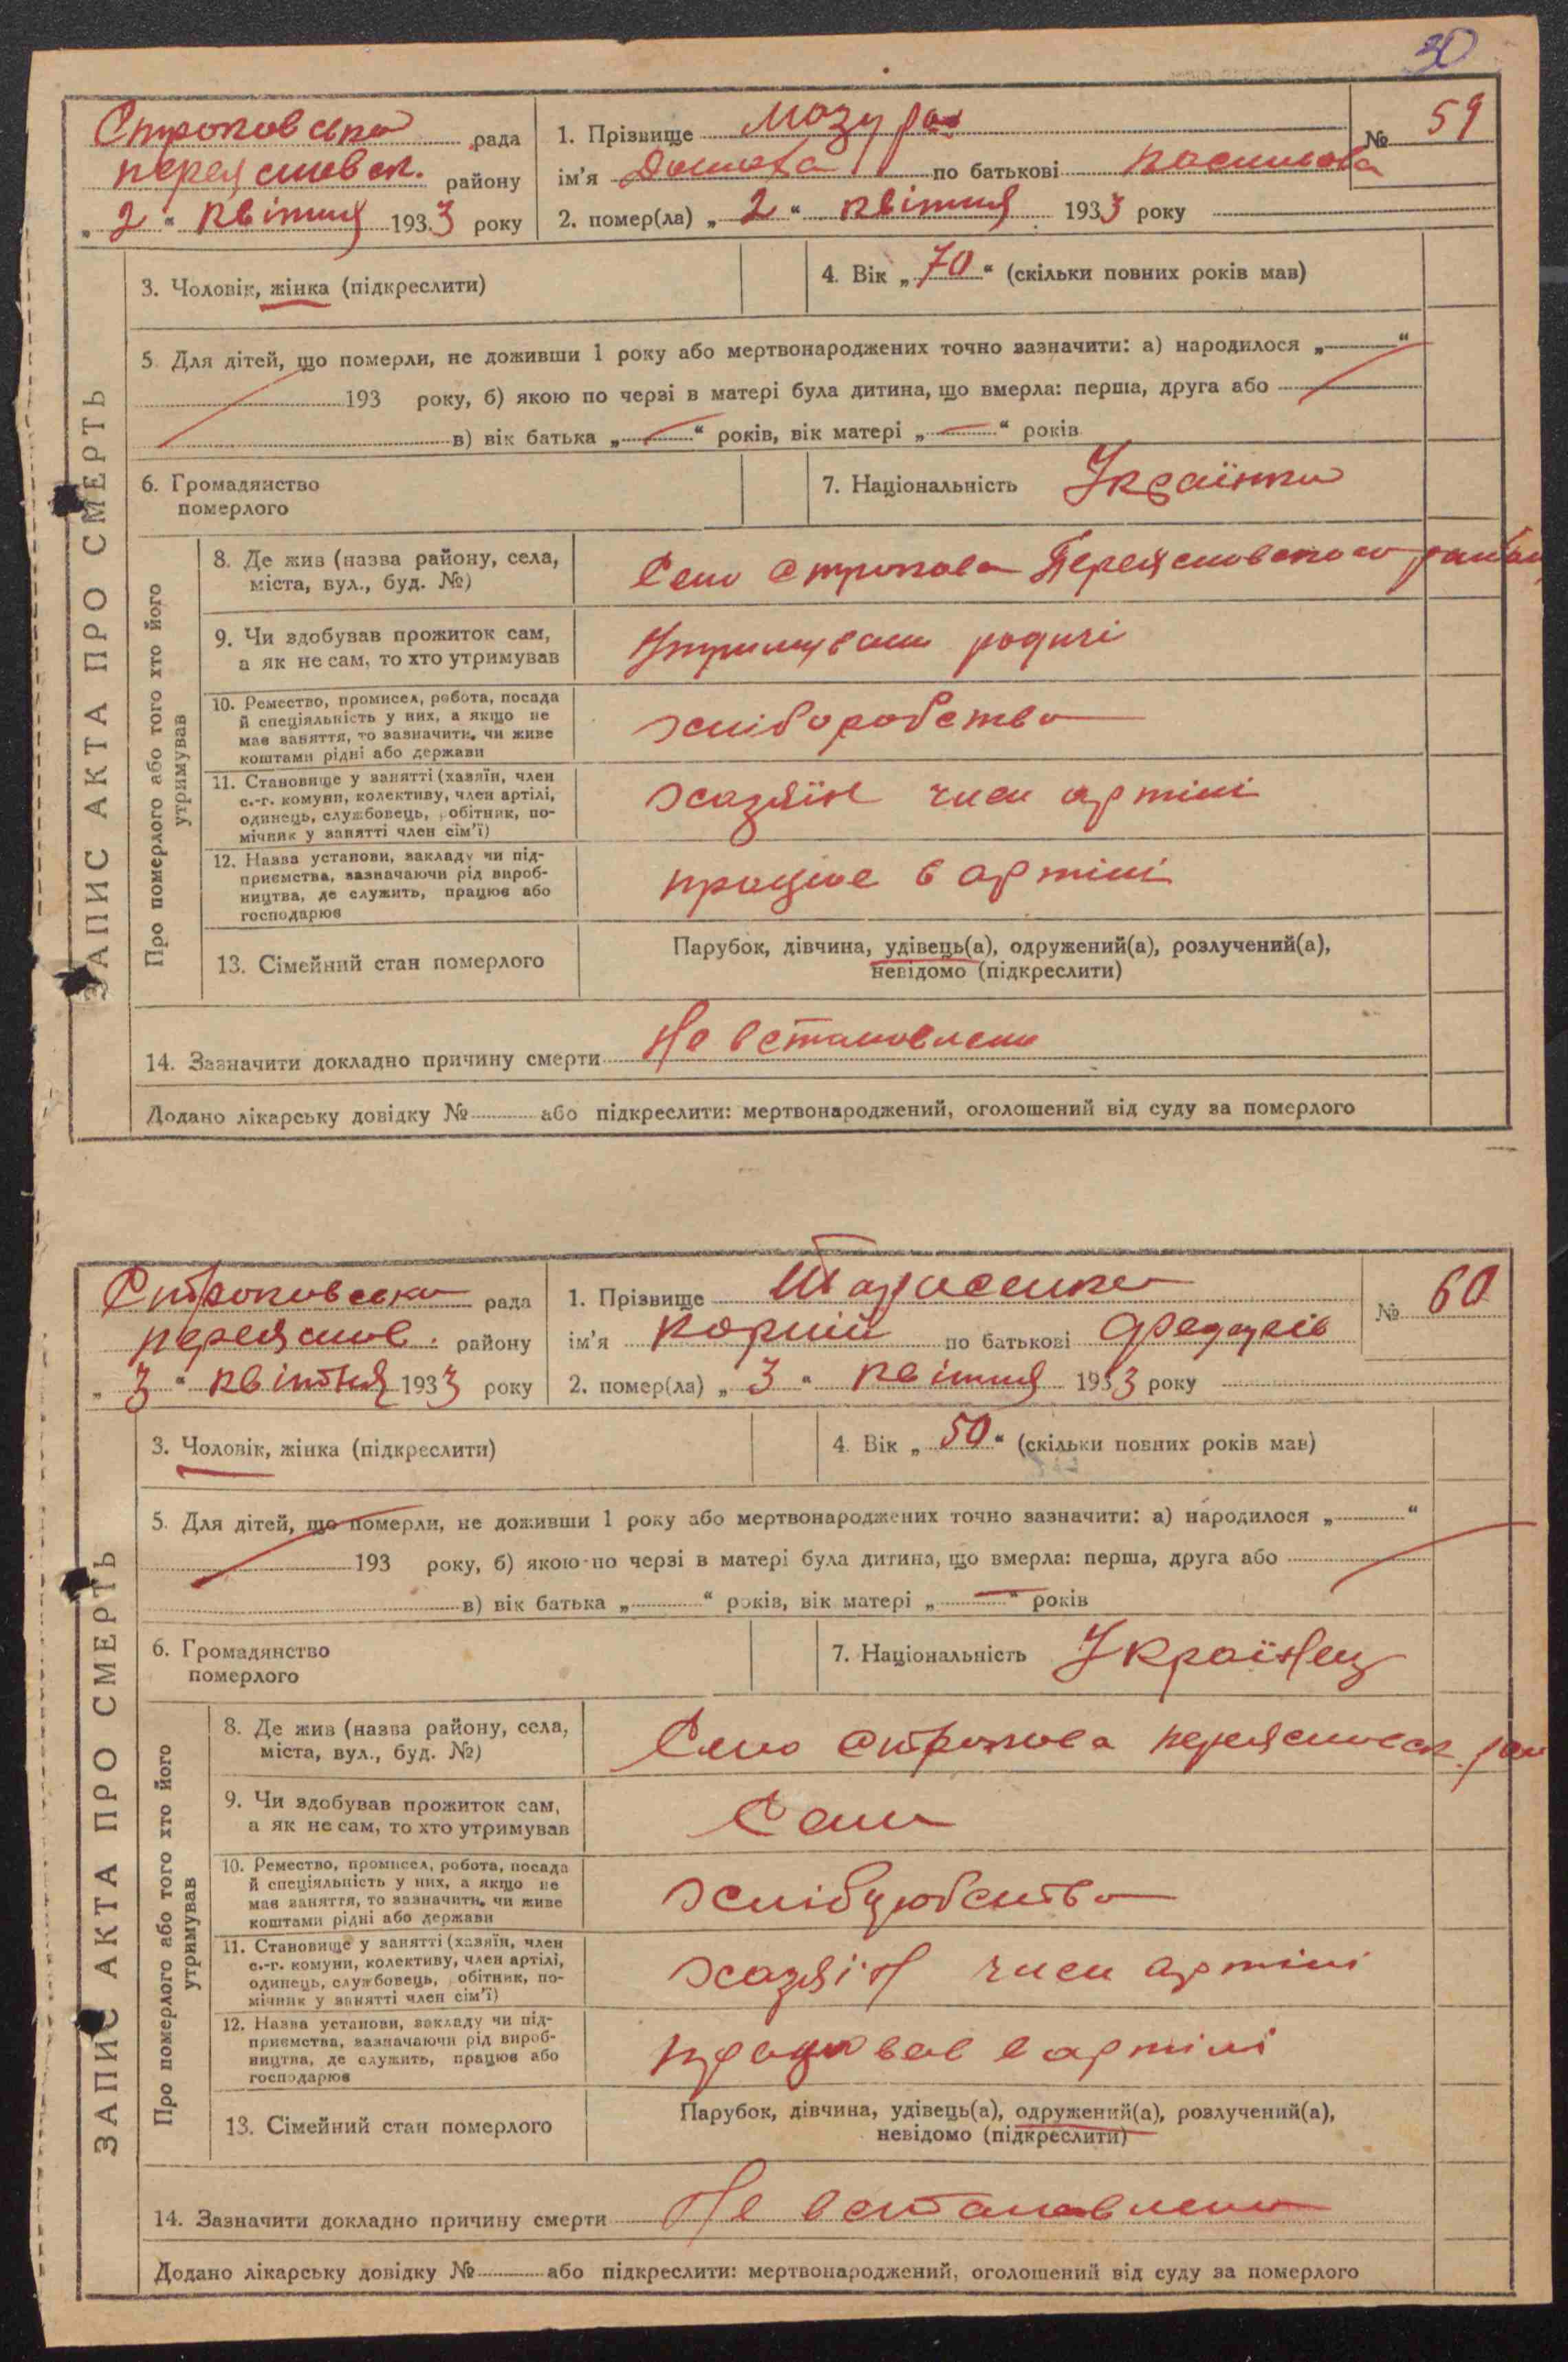 30
Строковська рада
переяславськ. району
„ 2 “ квітня 1933 року
1. Прізвище Мазура
№ 59
ім'я по батькові
2. помер(ла) „ 2 “ квітня 1933 року
3. Чоловік, жінка (підкреслити)
4. Вік „ 70 “ (скільки повних років мав)
5. Для дітей, що померли, не доживши 1 року або мертвонароджених точно зазначити: а) народилося „ “
193 року, б) якою по черзі в матері була дитина, що вмерла: перша, друга або
в) вік батька „ “ років, вік матері „ “ років
6. Громадянство
померлого
7. Національність Українка
ЗАПИС АКТА ПРО СМЕРТЬ
Про померлого або того хто його
утримував
8. Де жив (назва району, села,
міста, вул., буд. №)
Село Строкова Переяславського району
9. Чи здобував прожиток сам,
а як не сам, то хто утримував
Утримували родичі
10. Ремество, промисел, робота, посада
й спеціяльність у них, а якщо не
має заняття, то зазначити, чи живе
коштами рідні або держави
хліборобство
11. Становище у занятті (хазяїн, член
с.-г. комуни, колективу, член артілі,
одинець, службовець, робітник, по-
мічник у занятті член сім'ї)
хазяїн член артілі
12. Назва установи, закладу чи під-
приємства, зазначаючи рід вироб-
ництва, де служить, працює або
господарює
працює в артілі
13. Сімейний стан померлого
Парубок, дівчина, удівець(а), одружений(а), розлучений(а),
невідомо (підкреслити)
14. Зазначити докладно причину смерти Не встановлено
Додано лікарську довідку № або підкреслити: мертвонароджений, оголошений від суду за померлого
Строковська рада
переяслав. району
„ 3 “ квітня 1933 року
1. Прізвище Тарасенко
№ 60
ім'я Корній по батькові Федорів
2. помер(ла) „ 3 “ квітня 1933 року
3. Чоловік, жінка (підкреслити)
4. Вік „ 50 “ (скільки повних років мав)
5. Для дітей, що померли, не доживши 1 року або мертвонароджених точно зазначити: а) народилося „ “
193 року, б) якою по черзі в матері була дитина, що вмерла: перша, друга або
в) вік батька „ “ років, вік матері „ “ років
6. Громадянство
померлого
7. Національність Українец
ЗАПИС АКТА ПРО СМЕРТЬ
Про померлого або того хто його
утримував
8. Де жив (назва району, села,
міста, вул., буд. №)
Село Строкова переяславськ. рай
9. Чи здобував прожиток сам,
а як не сам, то хто утримував
Сам
10. Ремество, промисел, робота, посада
й спеціяльність у них, а якщо не
має заняття, то зазначити, чи живе
коштами рідні або держави
хліборобство
11. Становище у занятті (хазяїн, член
с.-г. комуни, колективу, член артілі,
одинець, службовець, робітник, по-
мічник у занятті член сім'ї)
хазяїн член артілі
12. Назва установи, закладу чи під-
приємства, зазначаючи рід вироб-
ництва, де служить, працює або
господарює
працював в артілі
13. Сімейний стан померлого
Парубок, дівчина, удівець(а), одружений(а), розлучений(а),
невідомо (підкреслити)
14. Зазначити докладно причину смерти Не встановлено
Додано лікарську довідку № або підкреслити: мертвонароджений, оголошений від суду за померлого